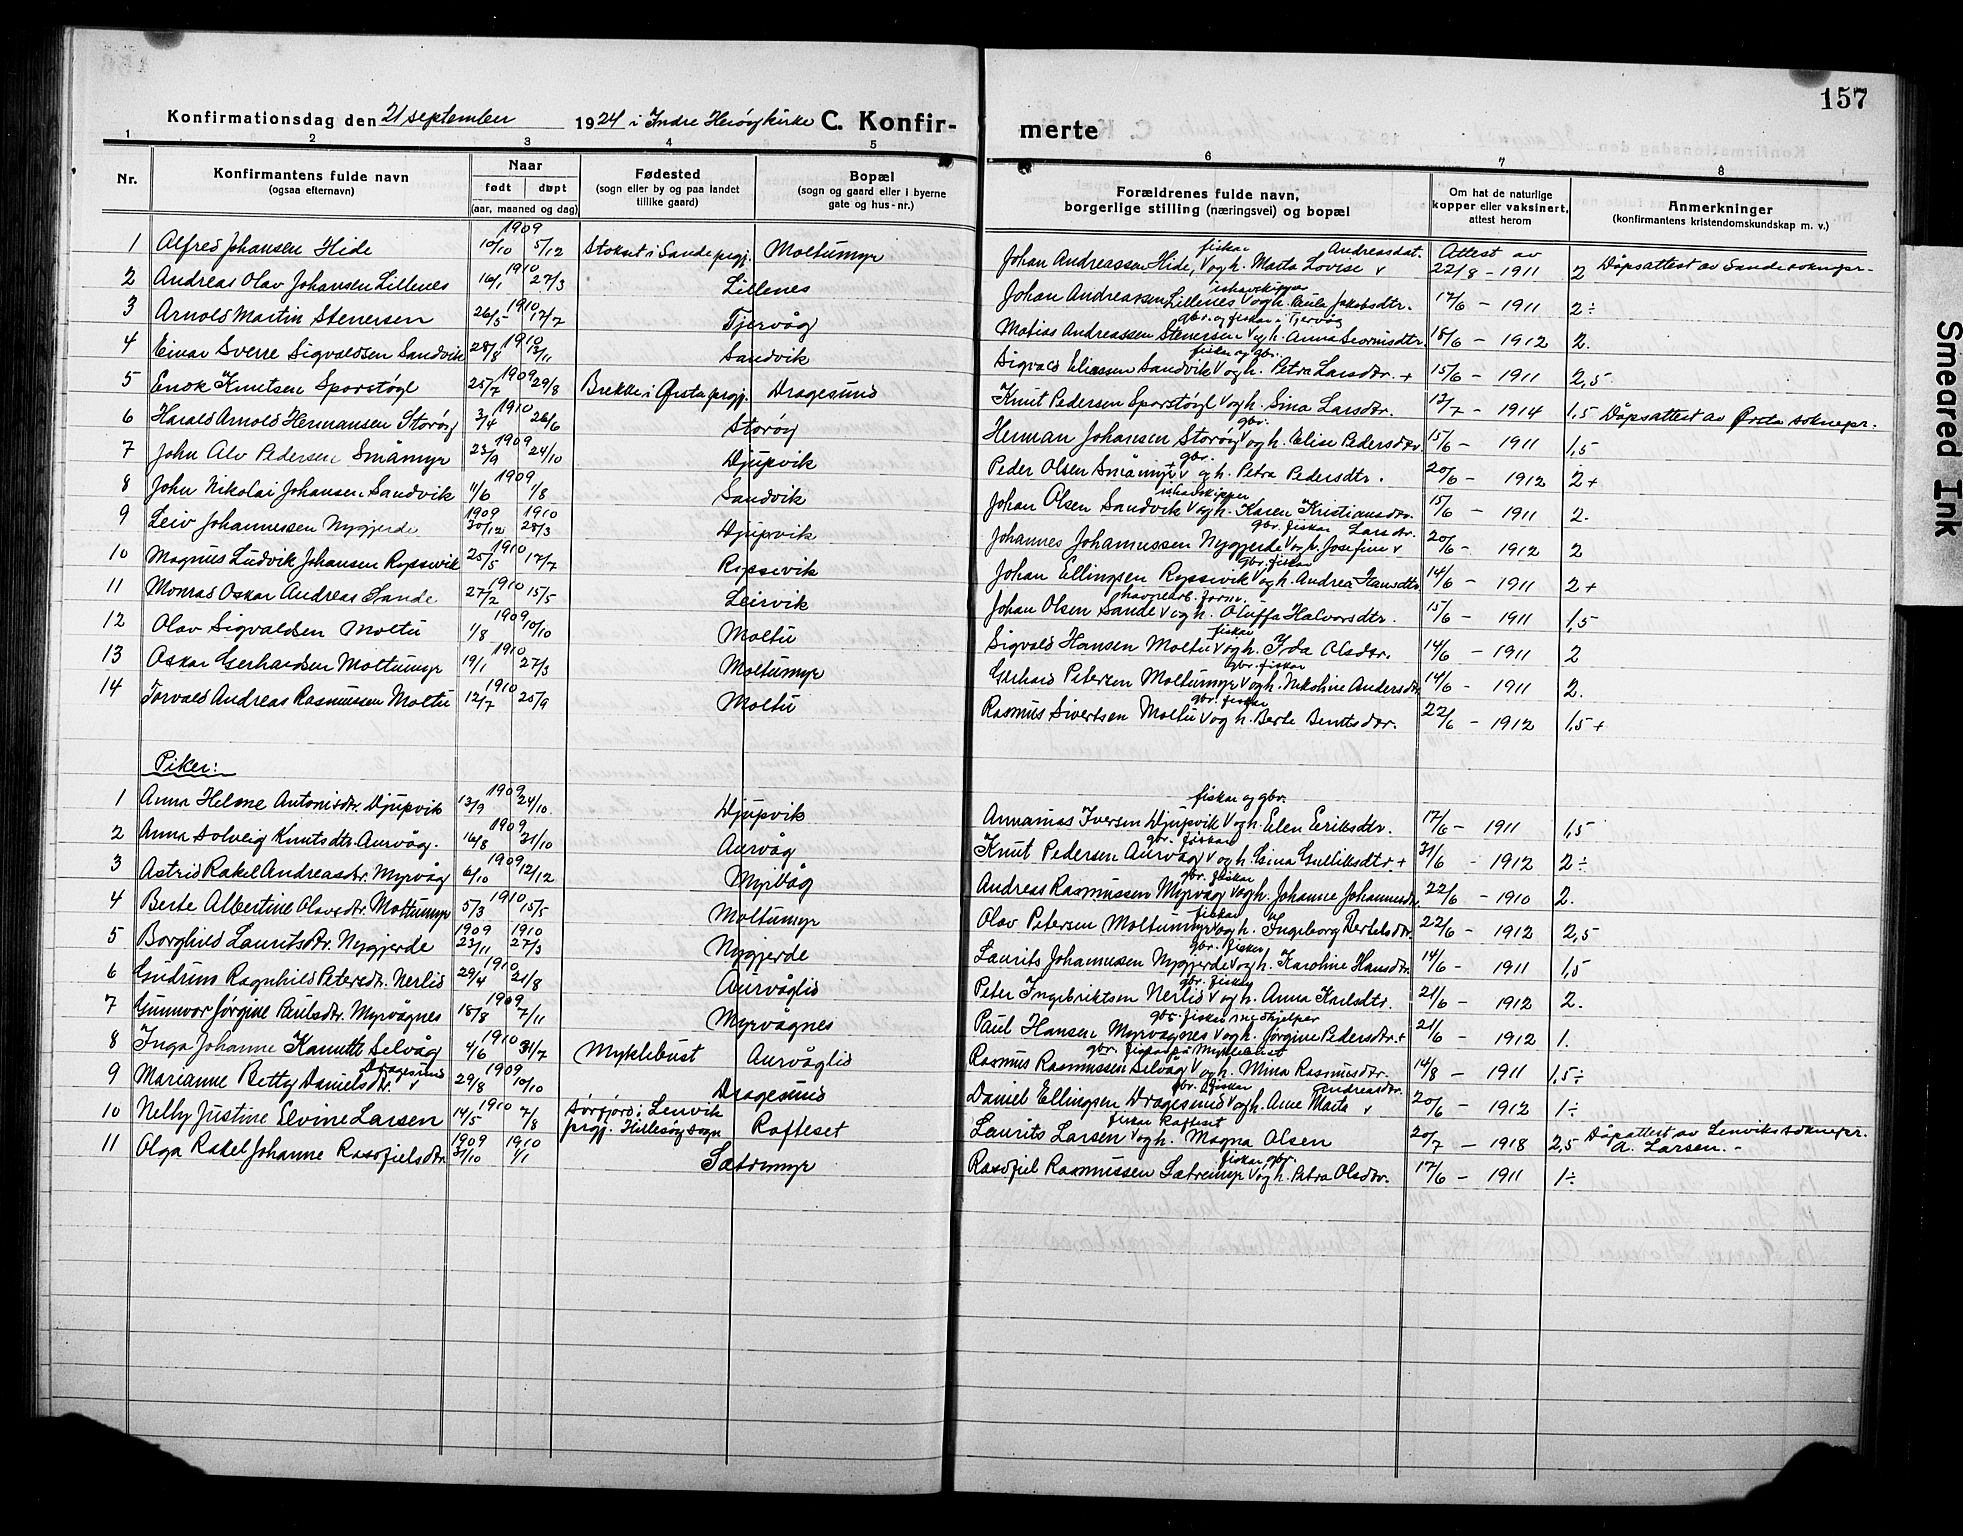 157
Konfirmationsdag den 21 september 1924 i Indre Herøy kirke C. Konfir- merte
1 2 3 4 5 6 7 8
Nr. Konfirmantens fulde navn (ogsaa efternavn) Naar født døpt (aar, maaned og dag) Fødested (sogn eller by og paa landet tillike gaard) Bopæl (sogn og gaard eller i byerne gate og hus-nr.) Forældrenes fulde navn, borgerlige stilling (næringsvei) og bopæl Om hat de naturlige kopper eller vaksinert, attest herom Anmerkninger (konfirmantens kristendomskundskap m. v.)
1 Alfred Johansen Hide 1909 10/10 5/12 Stokset i Sande prgj. Moltumyr Johan Andreassen Hide, fiskar v og h. Marta Lovise Andreasdat. v Attest av 22/8 - 1911 2 Dåpsattest av Sande soknepr.
2 Andreas Olav Johansen Lillenes 1910 16/1 27/3 Lillenes Johan Andreassen Lillenes ishavskipper v og h. Paula Jakobsdtr. 17/6 - 1911 2÷
3 Arnold Martin Stenersen 1910 26/5 17/7 Tjervåg Matias Andreassen Stenersen gbr. og fiskar i Tjervåg v og h. Anna Severinsdtr. 18/6 - 1912 2.
4 Einar Sverre Sigvaldsen Sandvik 1910 28/8 13/11 Sandvik Sigvald Eliassen Sandvik fiskar og gbr. v og h. Petra Larsdtr. + 15/6 - 1911 2,5
5 Enok Knutsen Sporstøyl 1909 25/7 29/8 Brekke i Ørsta prgj. Dragesund Knut Pedersen Sporstøyl v og h. Sina Larsdtr. 13/7 - 1914 1,5 Dåpsattest av Ørsta soknepr.
6 Harald Arnold Hermansen Storøy 1910 3/4 26/6 Storøy Herman Johansen Storøy gbr. v og h. Elise Pedersdtr 15/6 - 1911 1,5
7 John Alv Pedersen Småmyr 1909 23/9 24/10 Djupvik Peder Olsen Småmyr gbr. v og h. Petra Pedersdtr. 20/6 - 1912 2+
8 John Nikolai Johansen Sandvik 1909 11/6 1/8 Sandvik Johan Olsen Sandvik ishavskipper v og h. Karen Kristiansdtr. 15/6 - 1911 2.
9 Leiv Johannessen Nygjerde 1909 30/12 1910 28/3 Djupvik Johannes Johannessen Nygjerde gbr. fiskar v og h. Josefine Larsdtr. v 20/6 - 1912 2
10 Magnus Ludvik Johansen Røysevik 1910 25/5 17/7 Røysevik Johan Ellingsen Røysevik gbr. fiskar v og h. Andrea Hansdtr 14/6 - 1911 2+
11 Monrad Oskar Andreas Sande 1910 27/2 15/5 Leirvik Johan Olsen Sande havnearb. form. v og h. Oluffa Halvorsdtr. 15/6 - 1911 1,5
12 Olav Sigvaldsen Moltu 1909 1/8 10/10 Moltu Sigvald Hansen Moltu fiskar v og h. Ida Olsdtr. 14/6 - 1911 2
13 Oskar Gerhardsen Moltumyr 1910 19/1 27/3 Moltumyr Gerhard Petersen Moltumyr gbr. fiskar v og h. Nikoline Andersdtr 14/6 - 1911 2.
14 Torvald Andreas Rasmussen Moltu 1910 12/7 25/9 Moltu Rasmus Sivertsen Moltu gbr. fiskar v og h. Berte Berntsdtr. 22/6 - 1912 1,5+
Piker:
1 Anna Helene Antonisdtr. Djupvik 1909 13/9 24/10 Djupvik Annanias Iversen Djupvik fiskar og gbr. v og h. Elen Eriksdtr. 17/6 - 1911 1,5
2 Anna Solveig Knutsdtr. Aurvåg. 1909 16/8 31/10 Aurvåg Knut Pedersen Aurvåg gbr. fiskar v og h. Lina Gulliksdtr + 31/6 - 1912 2÷
3 Astrid Rakel Andreasdtr. Myrvåg 1909 6/10 12/12 Myrvåg Andreas Rasmussen Myrvåg gbr. fiskar v og h. Johanne Johannesdtr. 22/6 - 1910 2.
4 Berte Albertine Olavsdtr. Moltumyr 1910 5/3 15/5 Moltumyr Olav Petersen Moltumyr fiskar v og h. Ingeborg Bertelsdtr. 22/6 - 1912 2,5
5 Borghild Lauritsdtr. Nygjerde 1909 23/11 1910 27/3 Nygjerde Laurits Johannesen Nygjerde gbr. fiskar v og h. Karoline Hansdtr. 14/6 - 1911 1,5
6 Gudrun Ragnhild Petersdtr. Nerlid 1910 29/4 21/8 Aurvåglid Peter Ingebriktsen Nerlid gbr. fiskar v og h. Anna Karlsdtr. 21/6 - 1912 2.
7 Gunnvor Jørgine Paulsdtr. Myrvågnes 1909 18/8 7/11 Myrvågnes Paul Hansen Myrvågnes gbr. fiskar medhjelper v og h. Jørgine Pedersdtr + 21/6 - 1912 1.
8 Inga Johanne Kanutte Selvåg 1910 4/6 31/7 Myklebust Aurvåglid Rasmus Rasmussen Selvåg gbr. fiskar på Myklebust v og h. Mina Rasmusdtr. 14/8 - 1911 1,5÷
9 Marianne Betty Danielsdtr. Dragesund v 1909 29/8 10/10 Dragesund Daniel Ellingsen Dragesund gbr. fiskar v og h. Anne Marta Andreasdtr. v 20/6 - 1912 1÷
10 Nelly Justine Elvine Larsen 1910 14/5 7/8 Sørfjord i Lenvik prgj. Hillesøy sogn Rafteset Laurits Larsen fiskar Rafteset v og h. Magna Olsen 20/7 - 1918 2,5 Dåpattest av Lenvik soknepr. A. Larsen. -
11 Olga Rakel Johanne Rasofielsdtr 1909 31/10 1910 1/1 Sætremyr Rasofiel Rasmussen Sætremyr fiskar gbr. v og h. Petra Olsdtr. 17/6 - 1911 1÷
Smeared Ink